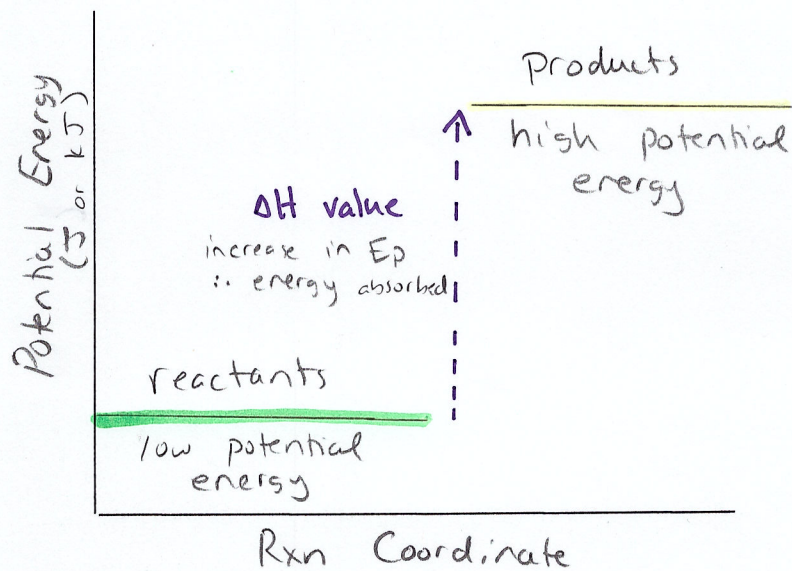 Potential Energy
(J or kJ)
products
high potential
energy
ΔH value
increase in Ep
∴ energy absorbed
reactants
low potential
energy
Rxn Coordinate